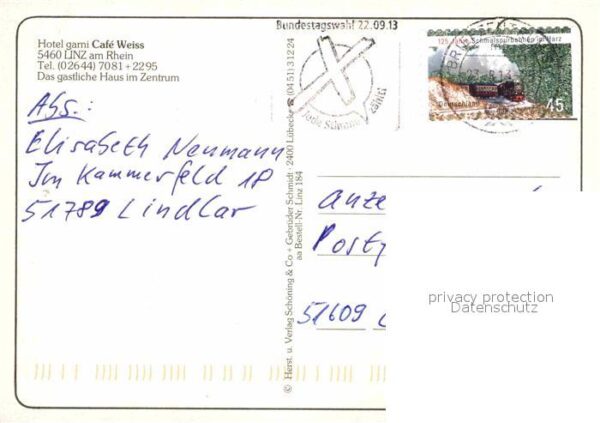 Hotel garni Café Weiss
5460 LINZ am Rhein
Tel. (02644) 7081 + 2295
Das gastliche Haus im Zentrum
Abs.:
Elisabeth Neumann
Im Kammerfeld 18
51789 Lindlar
© Herst. u. Verlag Schöning & Co + Gebrüder Schmidt · 2400 Lübeck ☎ (0451) 31224
aa Bestell-Nr. Linz 184
Bundestagswahl 22.09.13
Jede Stimme zählt!
125 Jahre Schmalspurbahnen im Harz
Deutschland
45
Anze
Postp
51609
privacy protection
Datenschutz